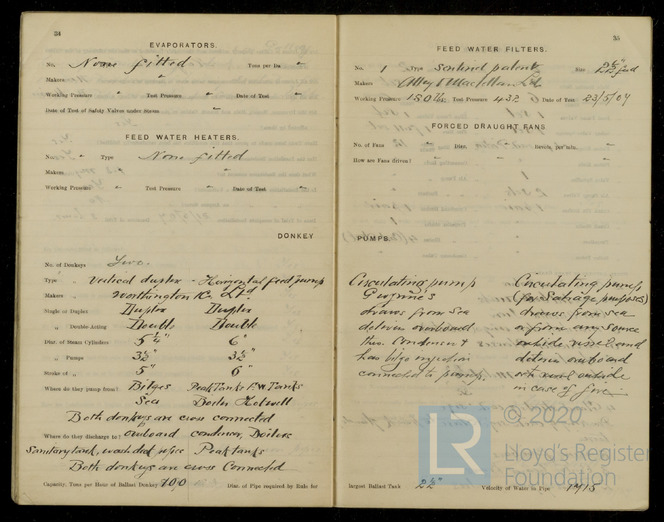 34
EVAPORATORS.
No. None fitted Tons per Day "
Makers "
Working Pressure " Test Pressure " Date of Test "
Date of Test of Safety Valves under Steam "
FEED WATER HEATERS.
No. " Type None fitted
Makers "
Working Pressure " Test Pressure " Date of Test "
DONKEY
No. of Donkeys Two.
Type " Vertical duplex - Horizontal feed pump
Makers " Worthington Co. Ltd.
Single or Duplex Duplex Duplex
" Double-Acting Double Double
Diar. of Steam Cylinders 5¼" 6"
" Pumps 3½" 3½"
Stroke of " 5" 6"
Where do they pump from? Bilges Peak Tanks F.W. Tanks
Sea Boiler Hotwell
Both donkeys are cross connected
Where do they discharge to? Overboard condenser, Boilers
Sanitary tank, wash deck pipe Peak tanks
Both donkeys are cross connected
Capacity, Tons per Hour of Ballast Donkey 100 Diar. of Pipe required by Rule for
35
FEED WATER FILTERS.
No. 1 Type Sentinel patent Size 2½"
Makers Alley & MacLellan Ltd
Working Pressure 180 lbs. Test Pressure 432 Date of Test 23/5/07
FORCED DRAUGHT FANS
No. of Fans " Diar. " Revols. per min. "
How are Fans driven? "
PUMPS.
Circulating pump
Gwynne's
draws from sea
delivers overboard
thro. Condenser &
has bilge injection
connected to pump.
Circulating pump
(for Salvage purposes)
draws from sea
or from any source
outside vessel and
delivers overboard
or to vessel outside
in case of fire
largest Ballast Tank 2½" Velocity of Water in Pipe
LR © 2020
Lloyd's Register
Foundation